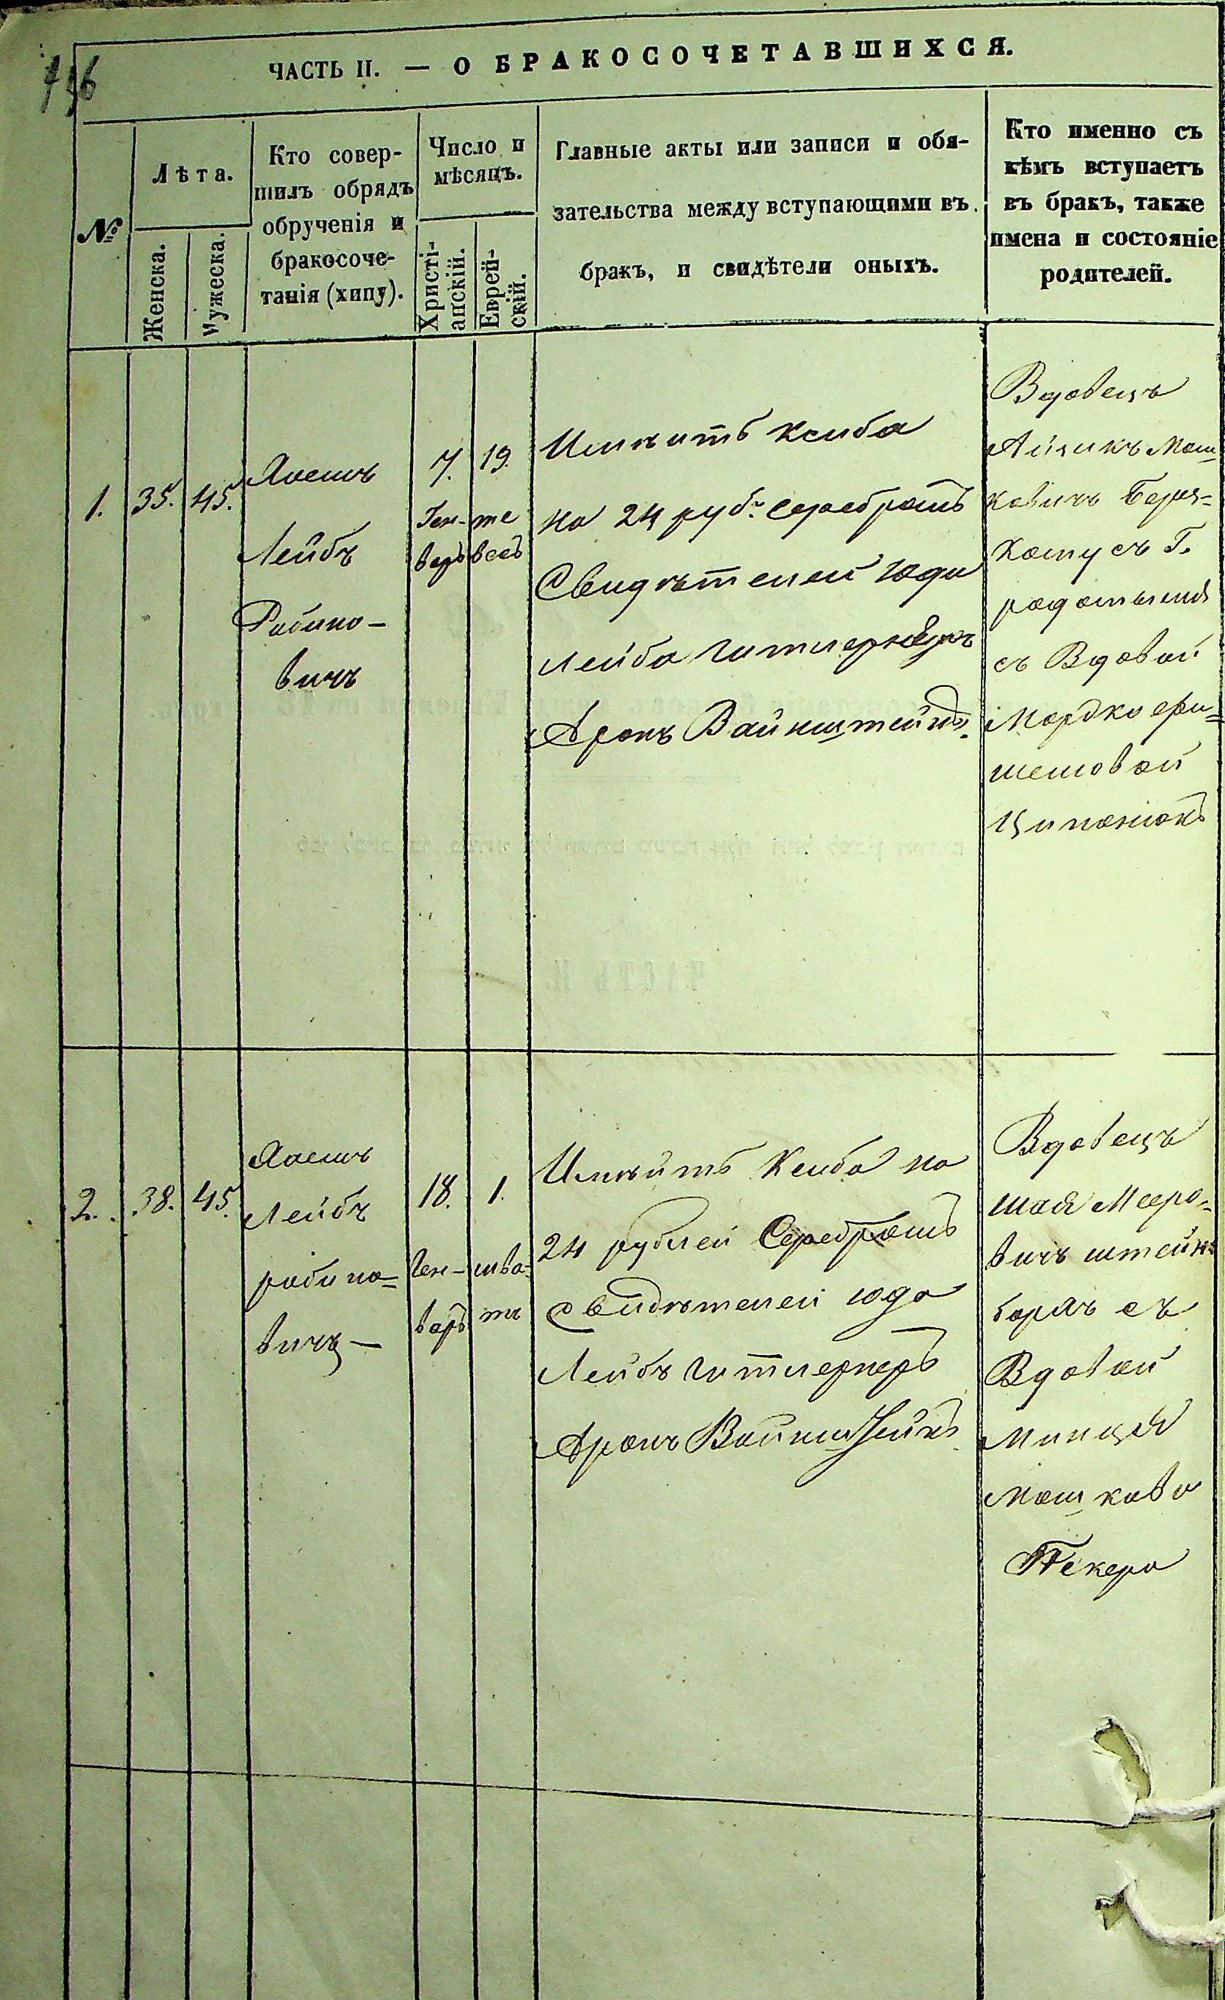 ЧАСТЬ II. — О БРАКОСОЧЕТАВШИХСЯ.
№
Лѣта.
Женска.
Мужеска.
Кто совер-
шилъ обрядъ
обрученія и
бракосоче-
танія (хипу).
Число и
мѣсяцъ.
Христі-
анскій.
Еврей-
скій.
Главные акты или записи и обя-
зательства между вступающими въ
бракъ, и свидѣтели оныхъ.
Кто именно съ
кѣмъ вступаетъ
въ бракъ, также
имена и состояніе
родителей.
1.
35.
45.
Лейбъ
Рабино-
вичъ
7.
Ген-
варь
19.
те
весъ
Имѣитъ ксиба
на 24 руб. серебромъ
Свидѣтелей юди
Лейба
Аронъ Вайнштейнъ.
Вдовецъ
Айзикъ Мош-
ковичъ
съ Г.
съ Вдовой
Мордко
Ципенюкъ
2.
38.
45.
Лейбъ
рабино-
вичъ —
18.
Ген-
варь
1.
шва-
тъ
Имѣйтъ ксиба на
24 рублей Серебромъ
свидѣтелей юдо
Лейбъ
Аронъ Вайнштейнъ
Вдовецъ
шая Мееро-
вичъ штейн-
съ
Вдовой
Мошково
Пекеро